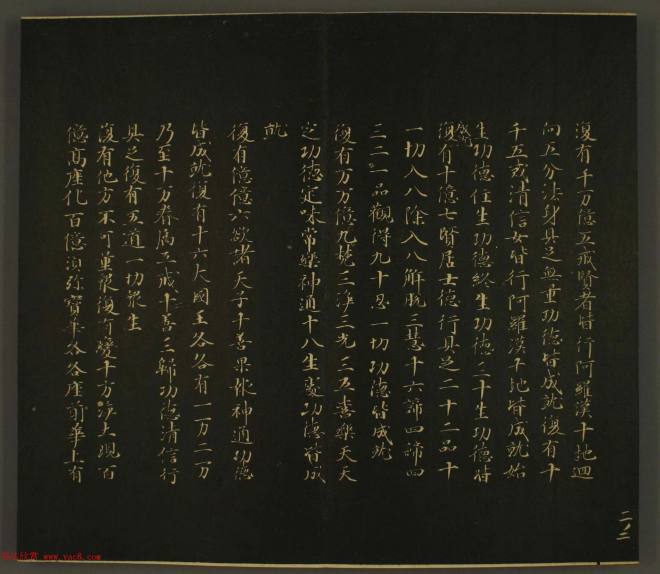 復有千万億五戒賢者皆行阿羅漢十地迴
向五分法身具足無量功德皆成就復有十
千五戒清信女皆行阿羅漢十地皆成就始
生功德住生功德終生功德三十生功德皆
成就
復有十億七賢居士德行具足二十二品十
一切入八除入八解脫三慧十六諦四諦四
三二一品觀得九十忍一切功德皆成就
復有万万億九梵三淨三光三五喜樂天天
定功德定味常樂神通十八生處功德皆成
就
復有億億六欲諸天子十善果報神通功德
皆成就復有十六大國王各各有一万二万
乃至十万眷属五戒十善三歸功德清信行
具足復有五道一切衆生
復有他方不可量衆復有變十方淨土現百
億高座化百億須弥寶華各各座前華上有
二ノ二
www.yac8.com